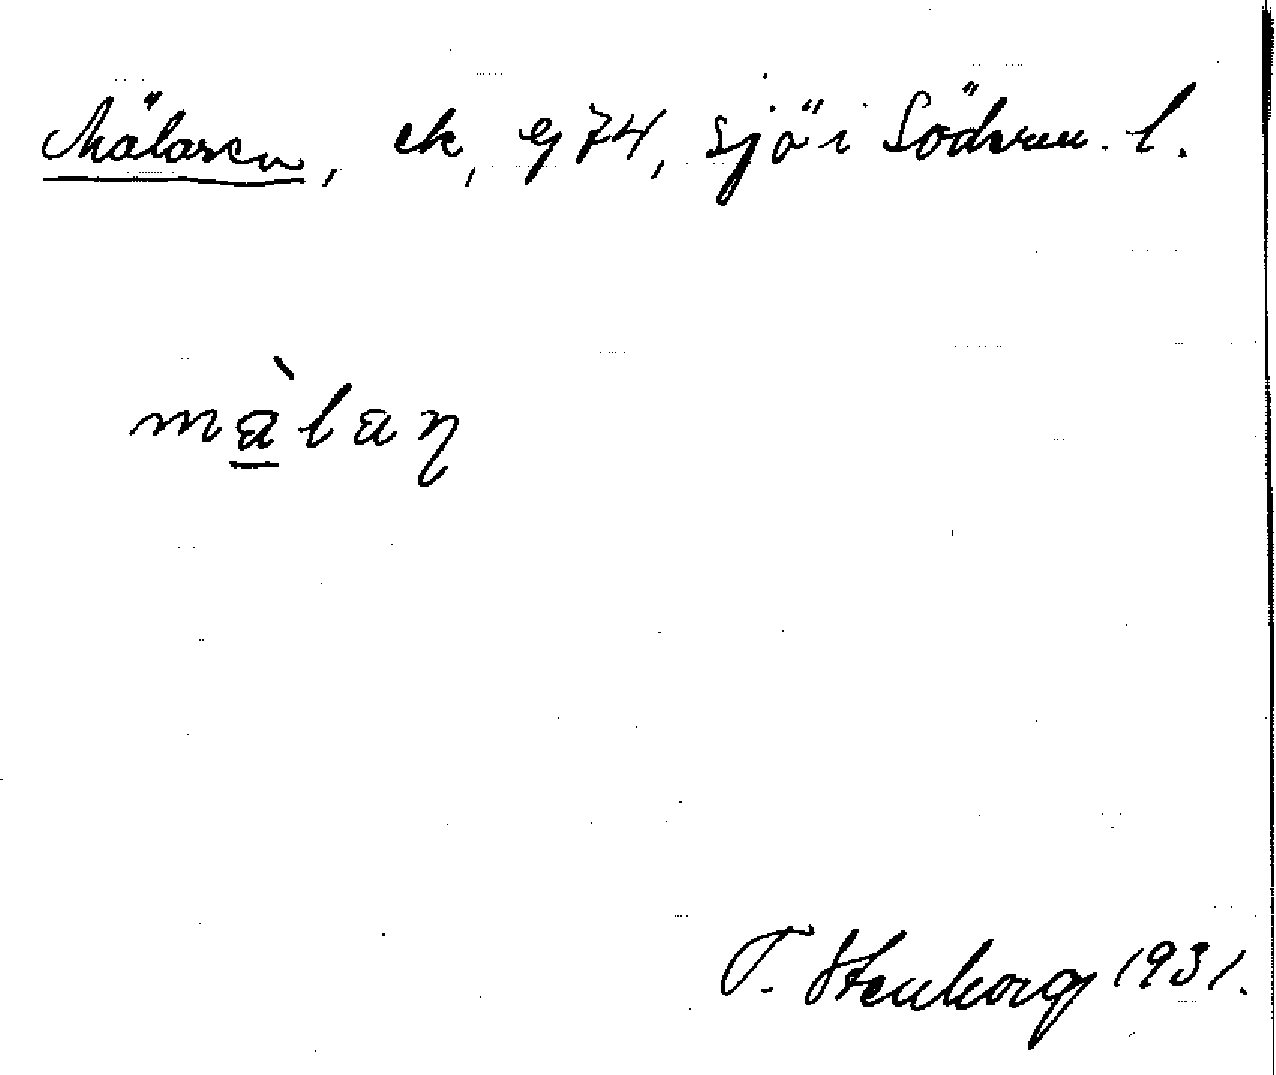 Mälaren, ek, eg 74, sjö i Söderm. l.
màlaɳ
T. Stenborg 1931.